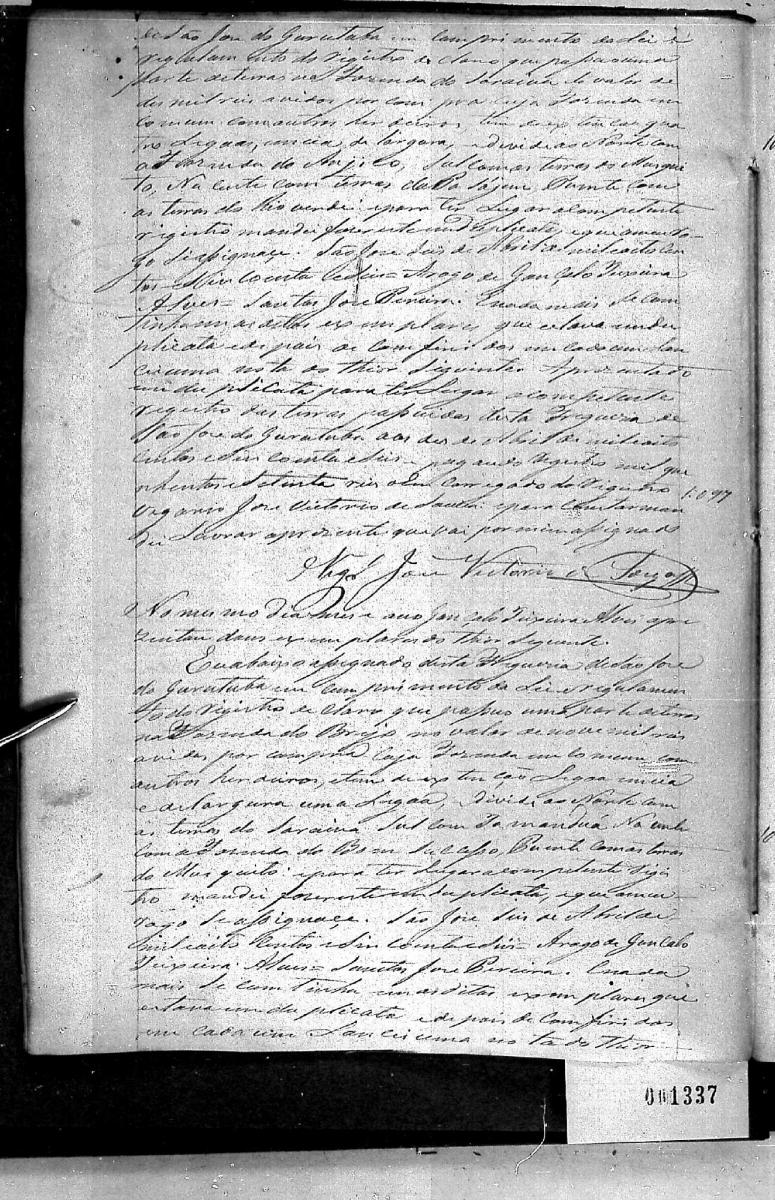 de São Jose do Gurutuba em comprimento da lei e
regulamento do registro declaro que pessuo uma
parte deterras na Fazenda do Saraiva no valor de
des mil reis avidos por com pra cuja Fazenda em
comum com outros herdeiros, tem de extenção qua
tro Legoas, e meia de largura, e divide ao Norte com
a Fazenda do Anjico, Sul com as terras do Mosqui
to, Nacente com terras da Passagem Puente com
as terras do Rio verde: e para ter Lugar a competente
registro mandei fazer este em duplicata, e que a meu ro
go se assignace. São Jose Seis de Abril de mil eoito cen
tos e Sincoenta e Seis = Arogo de Gonçalo Teixeira
Alves = Santos Jose Pereira. E nada mais se com
tinha nas ditas exemplares que estava em du
plicata e depois de comfiridos em cada um Lan
cei uma nota do thior Siguinte. Aprezentado
em du plicata para ter Lugar o competente
registro das terras pessuidas desta Freguezia de
São Jose do Gurutuba aos des de Abril de mil eoito
centos e Sin coenta e Seis, pagando registro mil qui
nhentos e Setenta reis o Em carregado do Registro
Vigario Jose Victorio de Souza e para constar man
dei Lavrar aprezente que vai por mim assignado
Vigr.º José Victorio de
No mesmo dia mes e anno Gonçalo Teixeira Alves apre
zentou dous exemplares do thior Seguinte.
Eu abaixo assignado desta Freguezia de São Jose
do Gurutuba em com primento da Lei e regulamen
to do registro declaro que pessuo uma parte deterras
na Fazenda do Brejo no valor de nove mil reis
avidos por compra cuja Fazenda em comum com
outros herdeiros, e tem de extenção Legoa e meia
e de largura uma Legoa, e divide ao Norte com
as terras do Saraiva Sul com Tamanduá Nacente
com a Fazenda do Bom Sucesso, Puente com as terras
do Mosquito: e para ter Lugar a competente regis
tro mandei fazer este em duplicata, e que a meu
rogo se assignaçe. São Jose Seis de Abril de
mil e oito Centos e Sin coenta e Seis = Arogo de Gonçalo
Teixeira Alves = Santos Jose Pereira. E nada
mais se com tinha nas ditas exemplares que
estava em du plicata e depois de comfiridos
em cada um Lancei uma nota do thior
001337